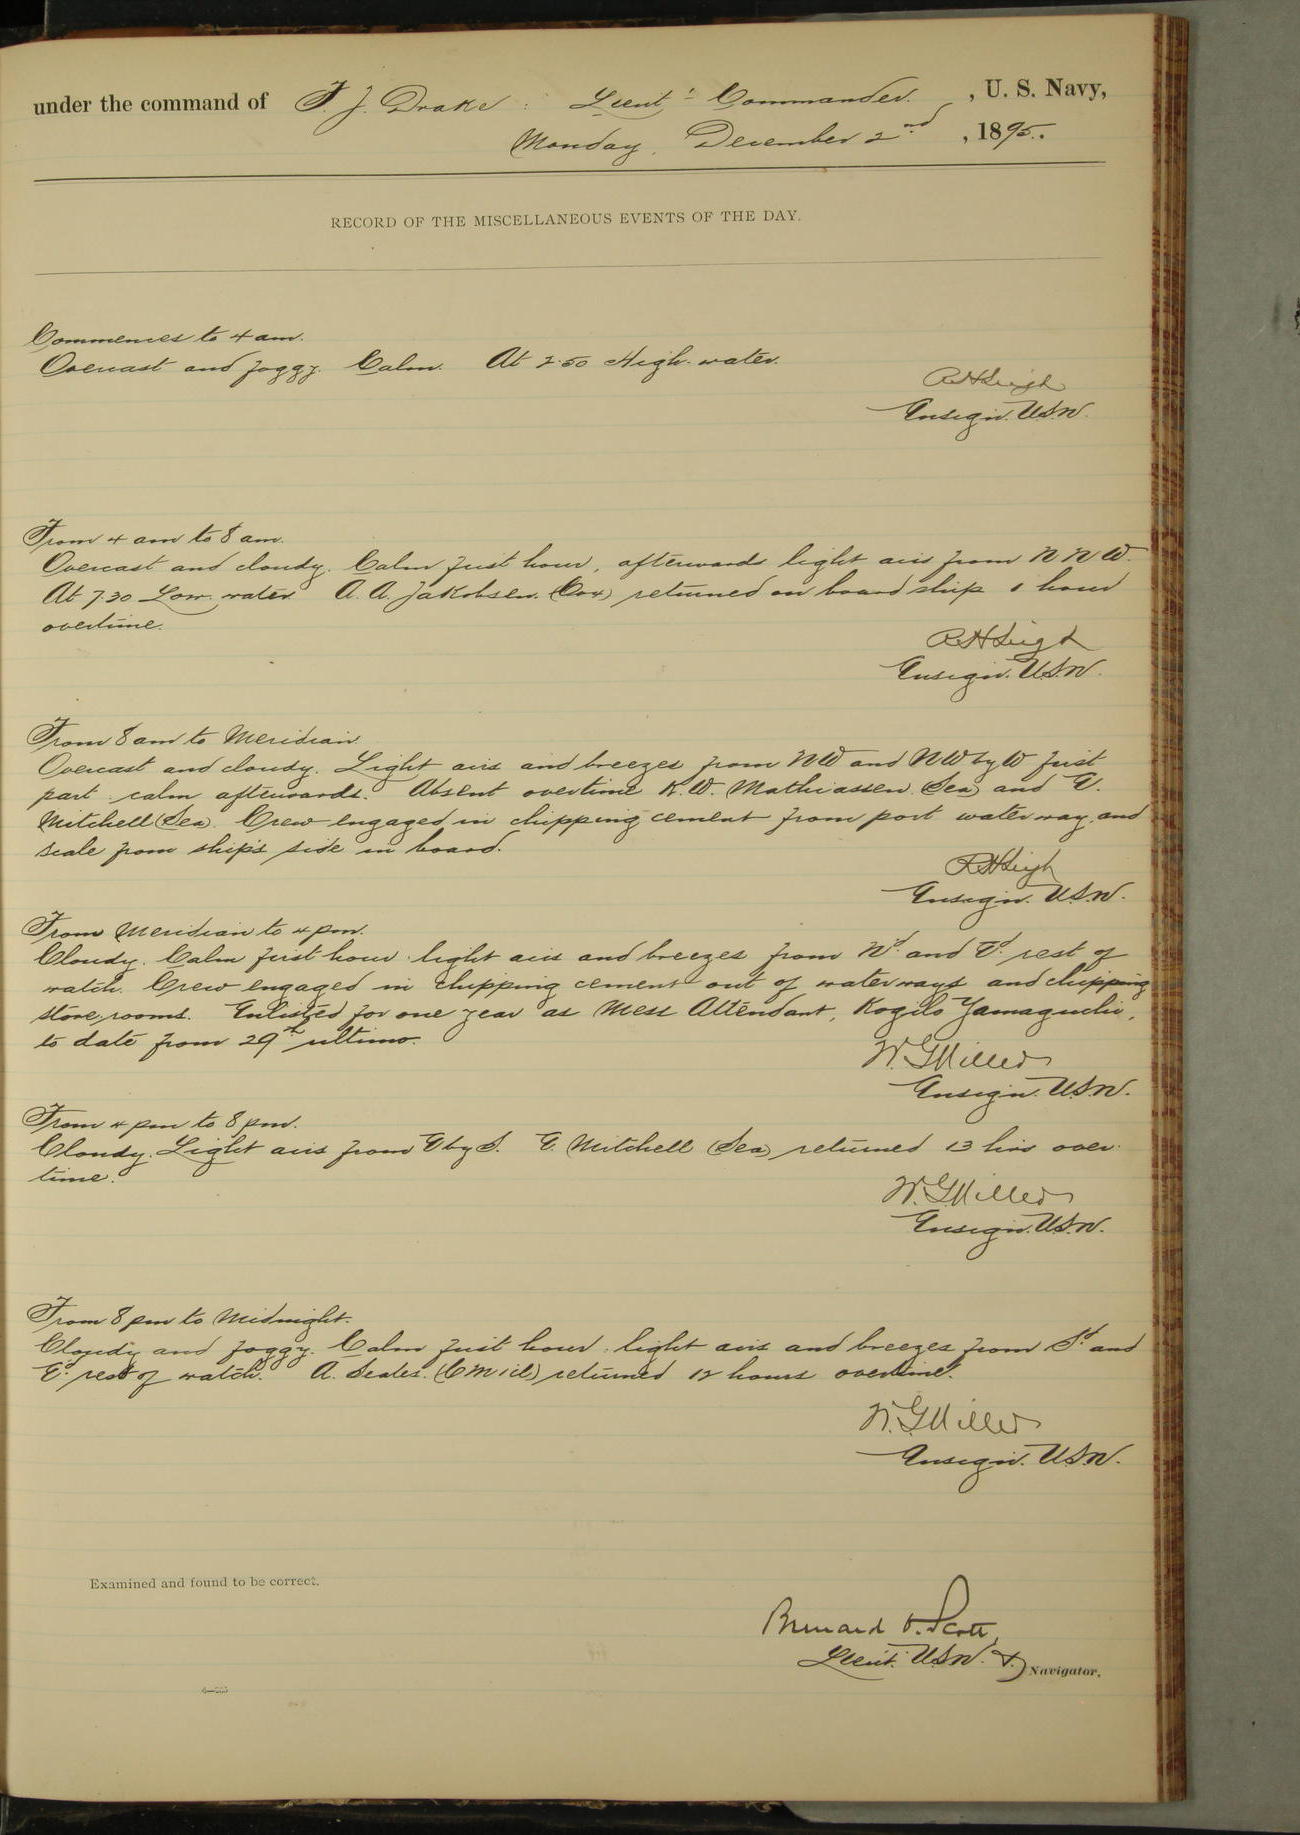 under the command of F. J. Drake : Lieut - Commander. , U. S. Navy,
Monday, December 2nd , 1895.
RECORD OF THE MISCELLANEOUS EVENTS OF THE DAY.
Commences to 4 am.
Overcast and foggy. Calm. At 2.50 High-water.
R H Leigh
Ensign. U.S.N.
From 4 am to 8 am.
Overcast and cloudy. Calm first hour, afterwards light airs from N N W.
At 7.30 Low water. A. A. Jakobsen. (Cox) returned on board ship 1 hour
overtime.
R H Leigh
Ensign. U.S.N.
From 8 am to Meridian
Overcast and cloudy. Light airs and breezes from NW and NW by W first
part calm afterwards. Absent overtime K. W. Mathiassen (Sea) and E.
Mitchell (Sea). Crew engaged in chipping cement from port waterway, and
scale from ship's side in board.
R H Leigh
Ensign. U.S.N.
From Meridian to 4 pm.
Cloudy. Calm first hour light airs and breezes from Nd. and Ed. rest of
watch. Crew engaged in chipping cement out of waterways and chipping
store, rooms. Enlisted for one year as Mess Attendant, Kogilo Yamaguchi,
to date from 29th ultimo.
W. G Miller
Ensign. U.S.N.
From 4 pm to 8 pm.
Cloudy. Light airs from E by S. E. Mitchell (Sea) returned 13 hrs over-
time.
W. G Miller
Ensign. U.S.N.
From 8 pm to Midnight.
Cloudy and foggy. Calm first hour, light airs and breezes from Sd. and
Ed. rest of watch. A. Scales. returned 12 hours overtime.
W. G Miller
Ensign. U.S.N.
Examined and found to be correct.
Bernard O. Scott,
Lieut. U.S.N. & Navigator.